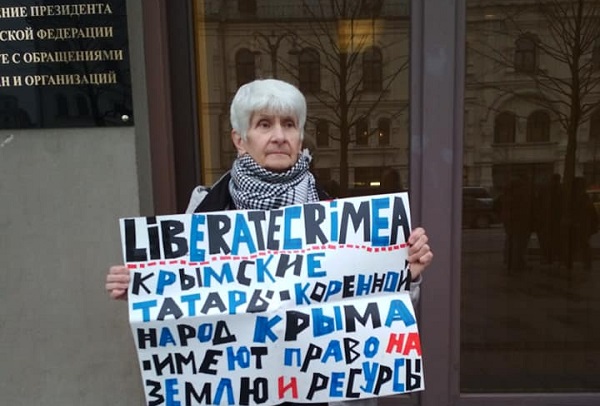 ЕНИЕ ПРЕЗИДЕНТА
СКОЙ ФЕДЕРАЦИИ
ТЕ С ОБРАЩЕНИЯМИ
АН И ОРГАНИЗАЦИЙ
LIBERATECRIMEA
КРЫМСКИЕ
ТАТАРЫ-КОРЕННОЙ
НАРОД КРЫМА
-ИМЕЮТ ПРАВО НА
ЗЕМЛЮ И РЕСУРСЫ